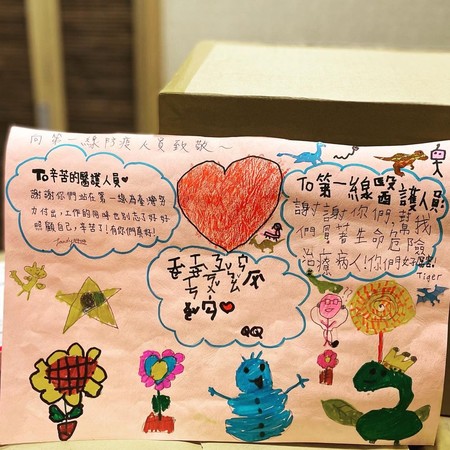 向第一線防疫人員致敬～
To辛苦的醫護人員♥
謝謝你們站在第一線為臺灣努
力付出,工作的同時也別忘了好好
照顧自己,辛苦了!有你們真好!
To第一線醫護人員
謝謝你們幫我
們冒著生命危險
治療病人!你們好
Tiger
QQ